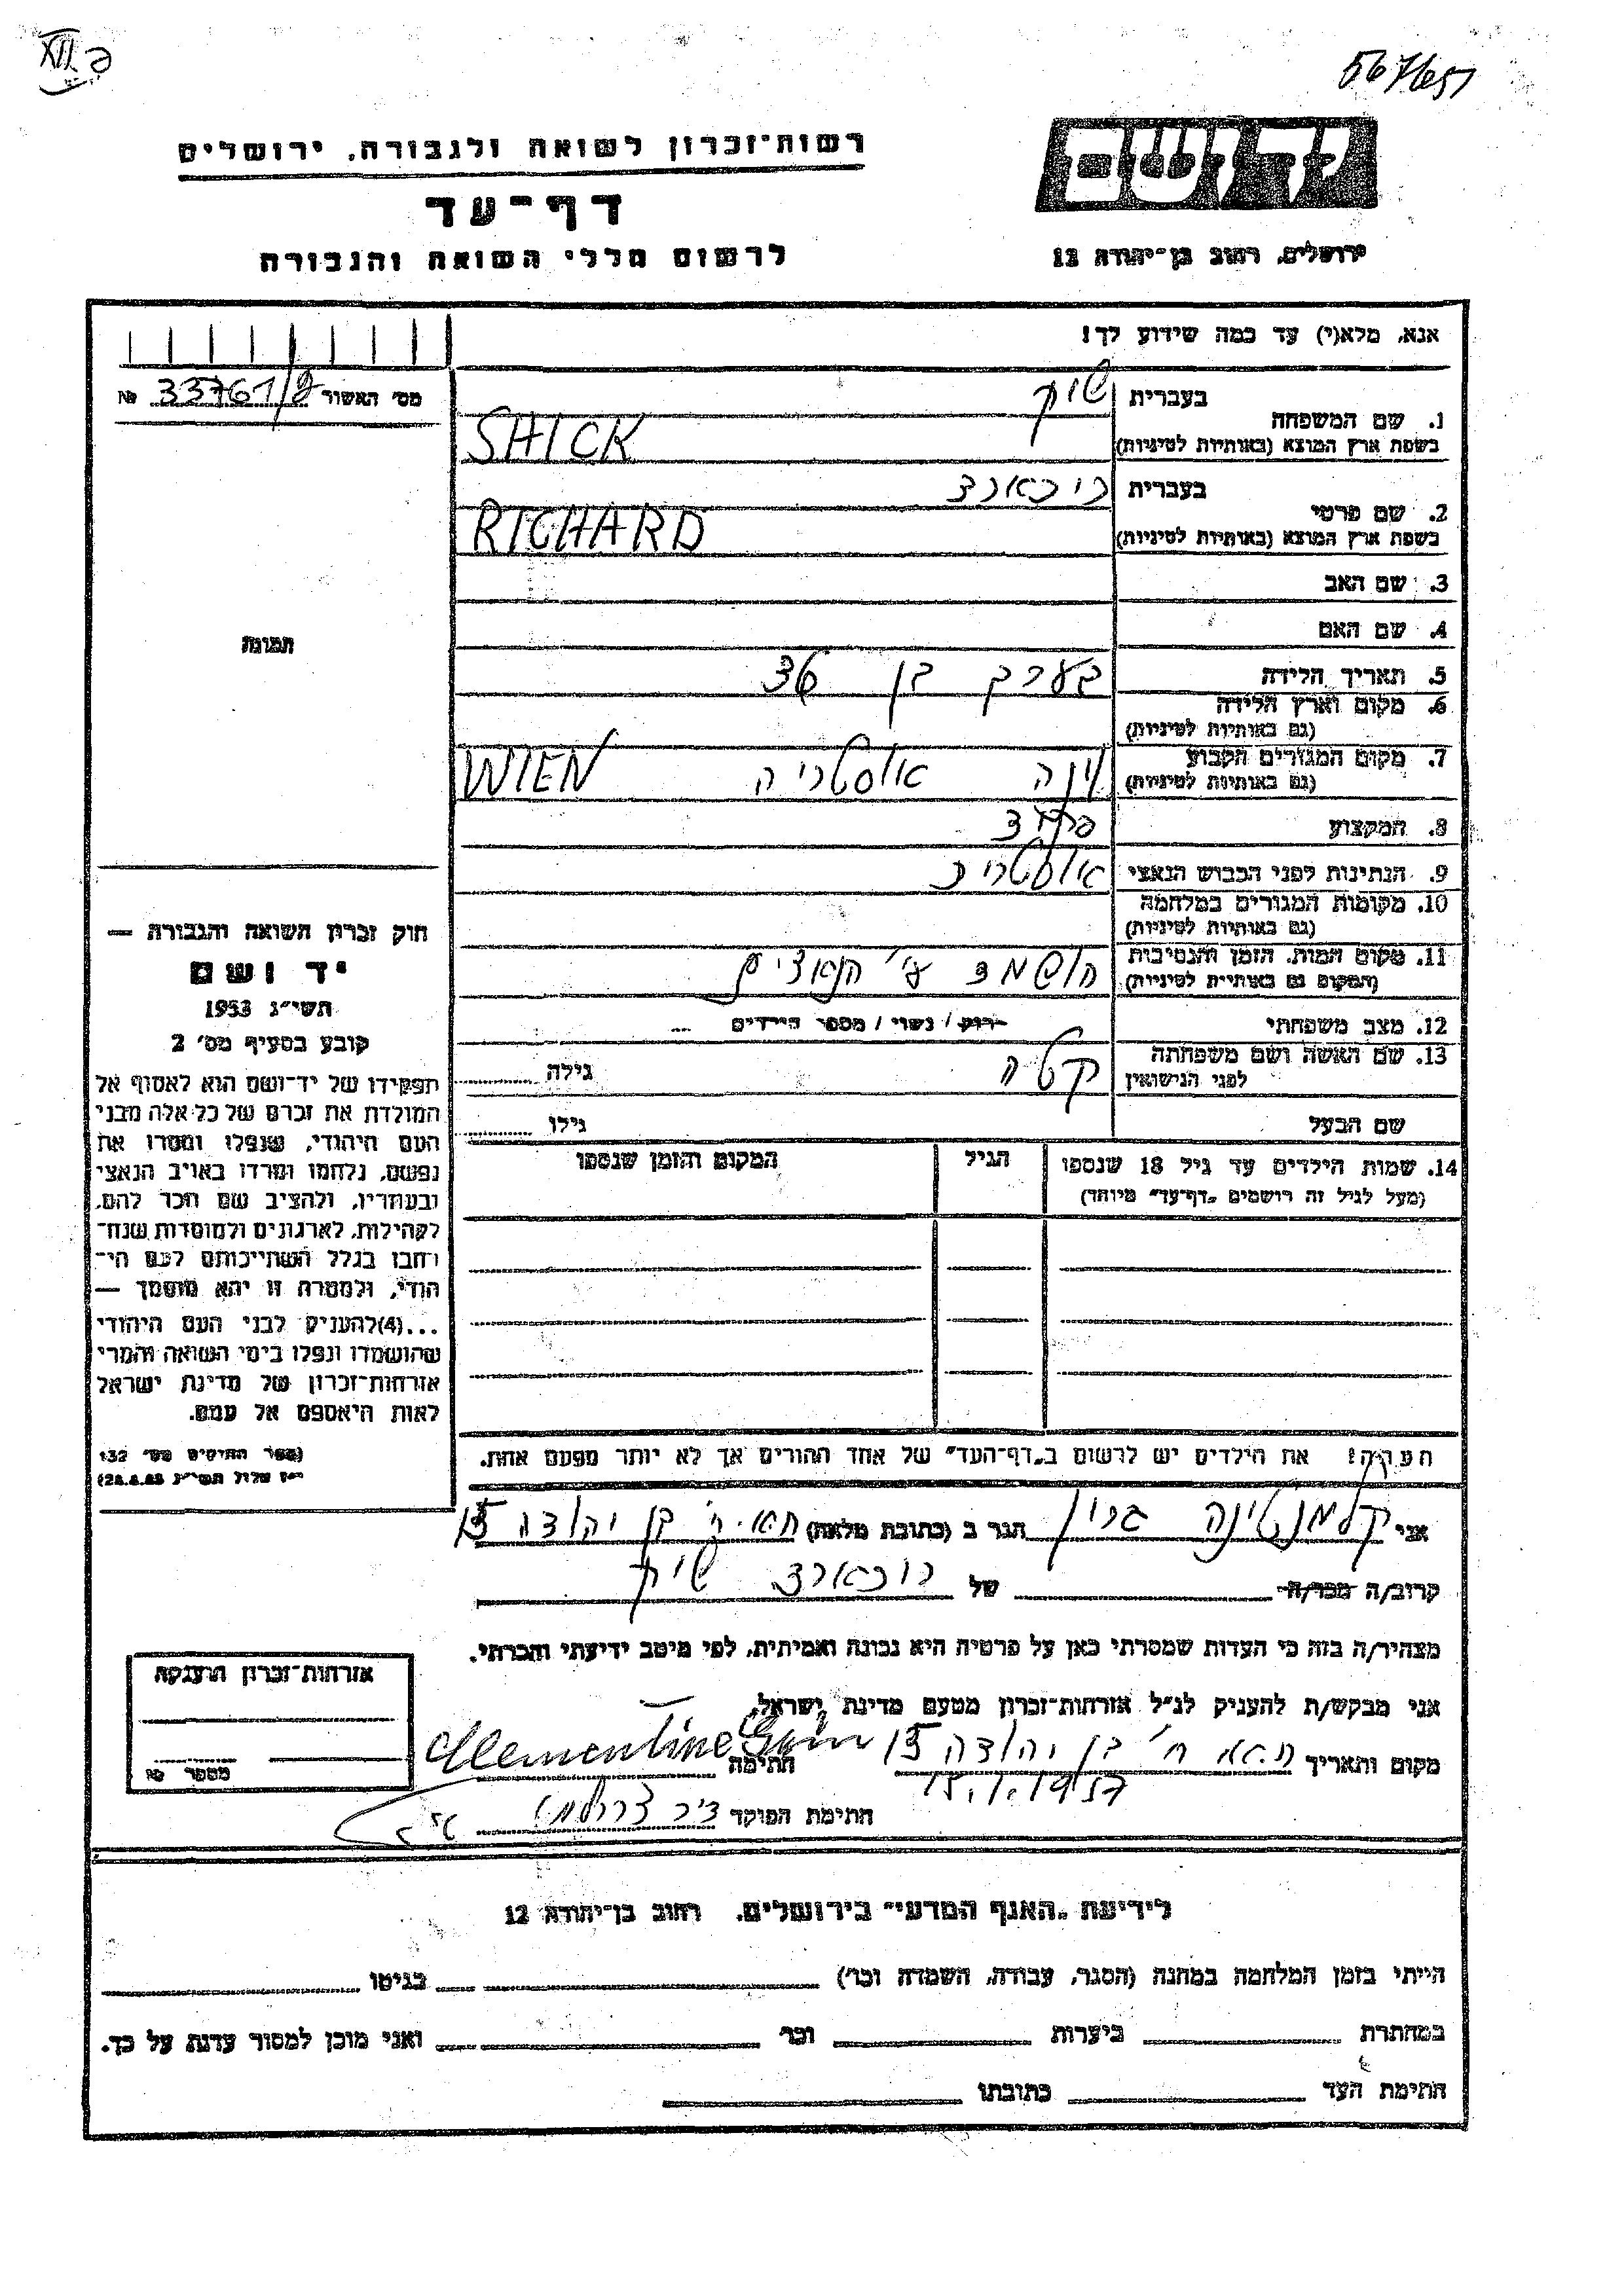 XII ב
567651
יד ושם
רשות־זכרון לשואה ולגבורה, ירושלים
דף־עד
לרשום חללי השואה והגבורה
ירושלים, רחוב בן־יהודה 12
אנא, מלא(י) עד כמה שידוע לך!
מס׳ האשור 33761/ № 
1. שם המשפחה
בעברית שיק
בשפת ארץ המוצא (באותיות לטיניות) SHICK
2. שם פרטי
בעברית ריכארד
בשפת ארץ המוצא (באותיות לטיניות) RICHARD
3. שם האב
4. שם האם
5. תאריך הלידה בערך בן 36
6. מקום וארץ הלידה
(גם באותיות לטיניות)
7. מקום המגורים הקבוע וינה אוסטריה WIEN
(גם באותיות לטיניות)
8. המקצוע פקיד
9. הנתינות לפני הכבוש הנאצי אוסטרי
10. מקומות המגורים במלחמה
(גם באותיות לטיניות)
11. מקום המות, הזמן והנסיבות הושמד ע״י הנאצים
(המקום גם באותיות לטיניות)
12. מצב משפחתי רוק / נשוי / מספר הילדים
13. שם האשה ושם משפחתה
לפני הנישואין
קטה גילה
שם הבעל גילו
14. שמות הילדים עד גיל 18 שנספו הגיל המקום והזמן שנספו
(מעל לגיל זה רושמים „דף־עד״ מיוחד)
תמונה
חוק זכרון השואה והגבורה —
יד ושם
תשי״ג 1953
קובע בסעיף מס׳ 2
תפקידו של יד־ושם הוא לאסוף אל
המולדת את זכרם של כל אלה מבני
העם היהודי, שנפלו ומסרו את
נפשם, נלחמו ומרדו באויב הנאצי
ובעוזריו, ולהציב שם וזכר להם,
לקהילות, לארגונים ולמוסדות שנח־
רבו בגלל השתייכותם לעם הי־
הודי, ולמטרה זו יהא מוסמך —
...(4)להעניק לבני העם היהודי
שהושמדו ונפלו בימי השואה והמרי
אזרחות־זכרון של מדינת ישראל
לאות היאספם אל עמם.
(ספר החוקים מס׳ 132
י״ז אלול תשי״ג 28.8.53)
הערה! את הילדים יש לרשום ב„דף־העד״ של אחד ההורים אך לא יותר מפעם אחת.
אני קלמנטינה גרין הגר ב (כתובת מלאה) ת״א. ר׳ בן יהודה 15
קרוב/ה מכר/ה של ריכארד שיק
מצהיר/ה בזה כי העדות שמסרתי כאן על פרטיה היא נכונה ואמיתית, לפי מיטב ידיעתי והכרתי.
אני מבקש/ת להעניק לנ״ל אזרחות־זכרון מטעם מדינת ישראל.
מקום ותאריך ת״א ר׳ בן יהודה 15 חתימה Clementine Grün
15.1.1957
חתימת הפוקד
אזרחות־זכרון הוענקה
מספר
לידיעת „האגף המדעי״ בירושלים, רחוב בן־יהודה 12
הייתי בזמן המלחמה במחנה (הסגר, עבודה, השמדה וכר׳) בגיטו
במחתרת ביערות וכר׳ ואני מוכן למסור עדות על כך.
חתימת העד כתובתו